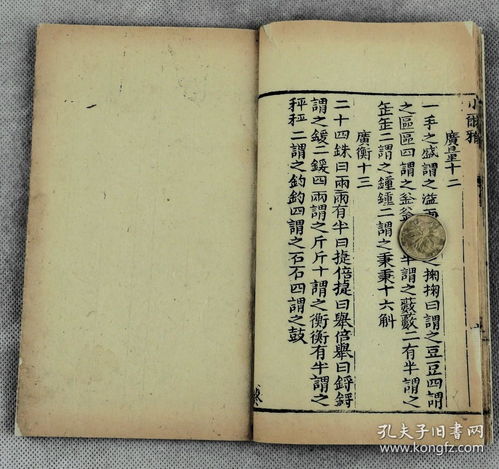 小爾雅
廣量十二
一手之盛謂之溢兩之掬掬曰謂之豆豆四謂
之區區四謂之釜半謂之藪藪二有半謂之
缶缶二謂之鐘鐘二謂之秉秉十六斛
廣衡十三
二十四銖曰兩兩有半曰捷倍捷曰舉倍舉曰鋝鋝
謂之鍰二鍰四兩謂之斤斤十謂之衡衡有半謂之
秤秤二謂之鈞鈞四謂之石石四謂之鼓
孔夫子旧书网
www.kongfz.com